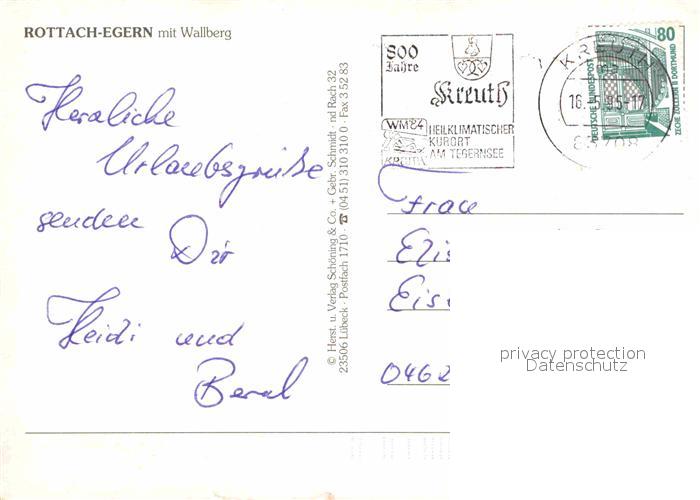 ROTTACH-EGERN mit Wallberg
Herzliche
Urlaubsgrüße
senden
Dir
Heidi und
Bernd
© Herst. u. Verlag Schöning & Co. + Gebr. Schmidt · nd Rach 32
23506 Lübeck · Postfach 1710 · ☎ (04 51) 310 310 0 · Fax 3 52 83
800
Jahre
Kreuth
WM'84
KREUTH
HEILKLIMATISCHER
KURORT
AM TEGERNSEE
KREUTH
83708
80
DEUTSCHE BUNDESPOST
ZECHE ZOLLERN II DORTMUND
Frau
Elis
Eis
0462
privacy protection
Datenschutz